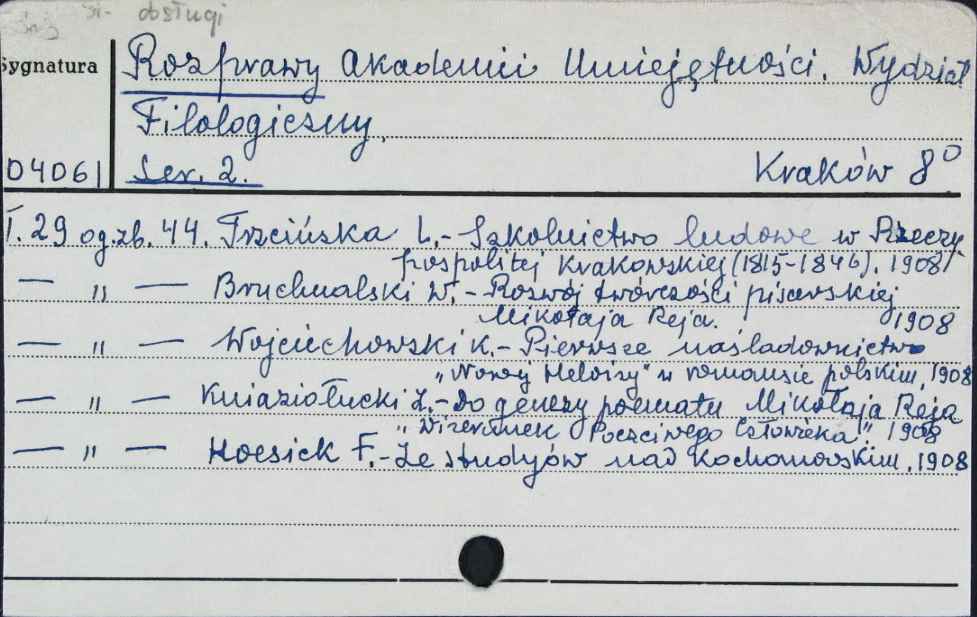 obsługi
Sygnatura
Rozprawy Akademii Umiejętności. Wydział
Filologiczny.
04061 Ser. 2. Kraków 8°
T. 29 og.zb. 44. Trzcińska L.- Szkolnictwo ludowe w Rzeczy-
pospolitej Krakowskiej (1815-1846). 1908
— " — Bruchnalski W. - Rozwój twórczości pisarskiej
Mikołaja Reja. 1908
— " — Wojciechowski K.- Pierwsze naśladownictwo
"Nowej Heloizy" w romansie polskim, 1908
— " — Kniaziołucki Z.- Do genezy poematu Mikołaja Reja
"Wizerunek Poczciwego Człowieka". 1908
— " — Hoesick F.- Ze studyów nad Kochanowskim, 1908